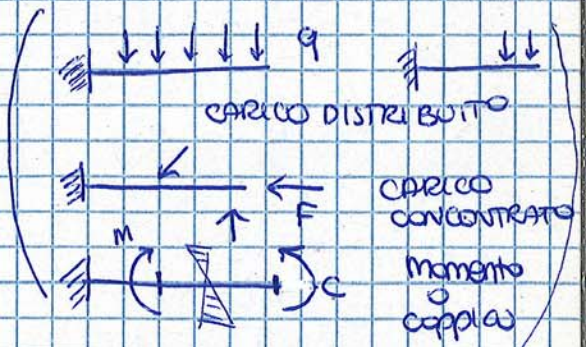 q
CARICO DISTRIBUITO
F
CARICO
CONCENTRATO
M
C
momento
o
coppia